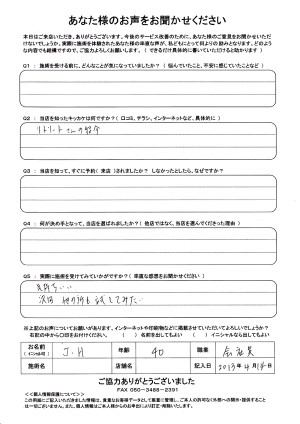 あなた様のお声をお聞かせください
本日はご来店いただき、ありがとうございます。今後のサービス改善のために、あなた様のご意見をお聞かせいただけないでしょうか。実際に施術を体験されたあなた様の率直な声が、私どもにとって何よりの励みとなります。どのような内容でも結構ですので、ご協力よろしくお願いします。（できるだけ具体的に書いていただけると助かります）
Q1 : 施術を受ける前に、どんなことが気になっていましたか？（悩んでいたこと、不安に感じていたことなど）
Q2 : 当店を知ったキッカケは何ですか？（口コミ、チラシ、インターネットなど、具体的に）
さんの紹介
Q3 : 当店を知って、すぐに予約（来店）されましたか？ しなかったとしたら、なぜですか？
Q4 : 何が決め手となって、当店を選ばれましたか？（他店ではなく、当店を選んでくださった理由）
Q5 : 実際に施術を受けてみていかがですか？（率直な感想をお聞かせください）
気持ちいい
次回 他の所も試してみたい
※上記のお声についてお願いがあります。インターネットや印刷物などに掲載させていただいてよろしいでしょうか？
右記の中から〇印をお付けください。 （ ）名前を出してもよい （ ）イニシャルなら出してもよい
お名前（イニシャル可） J.H 年齢 40 職業 会社員
施術名 店舗名 記入日 2013年4月14日
ご協力ありがとうございました
FAX 050-3488-2391
<<個人情報保護について>>
この用紙にご記入いただきました情報は、貴重なお客様データとして厳重に管理し、ご本人の許可ない外部への開示・提供することは一切ございません。また、個人情報はご本人様からのお申出により訂正・削除いたします。